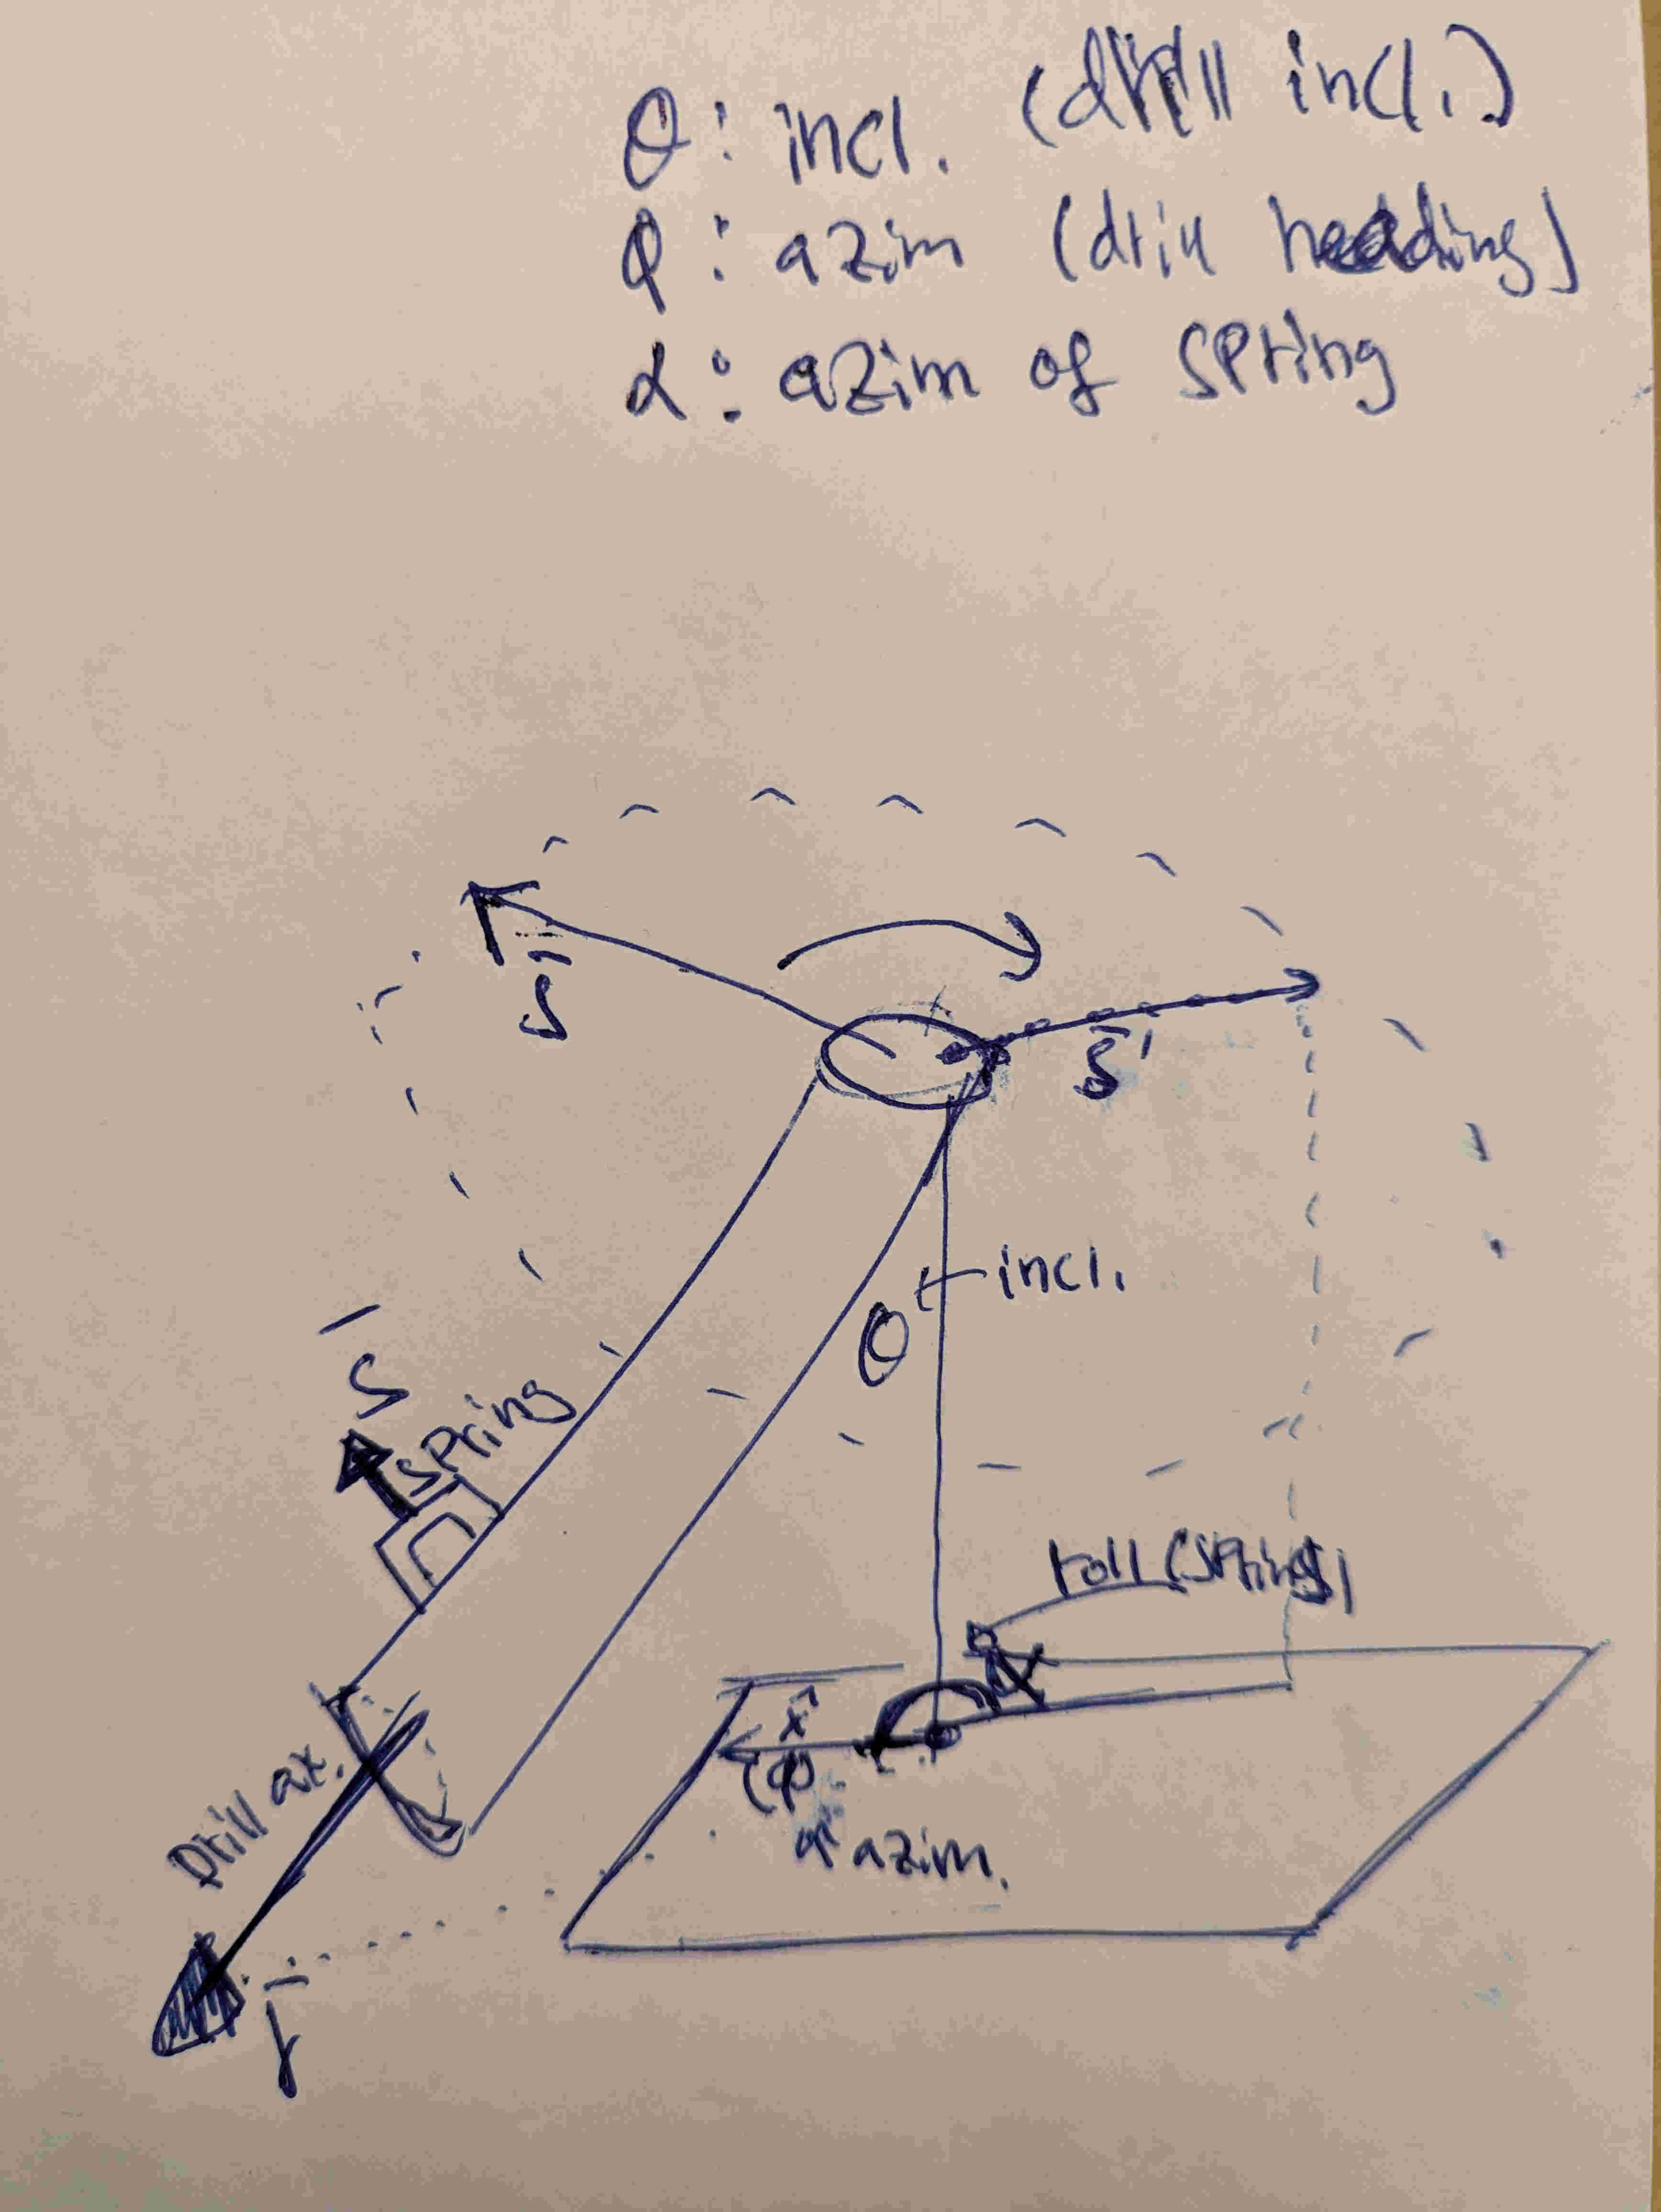 θ: incl. (drill incl.)
φ: azim (drill heading)
α: azim of spring
S̄
S̄'
incl.
θ
S̄
spring
roll (spring)
α
x̂
(φ)
azim.
Drill ax.
r̄